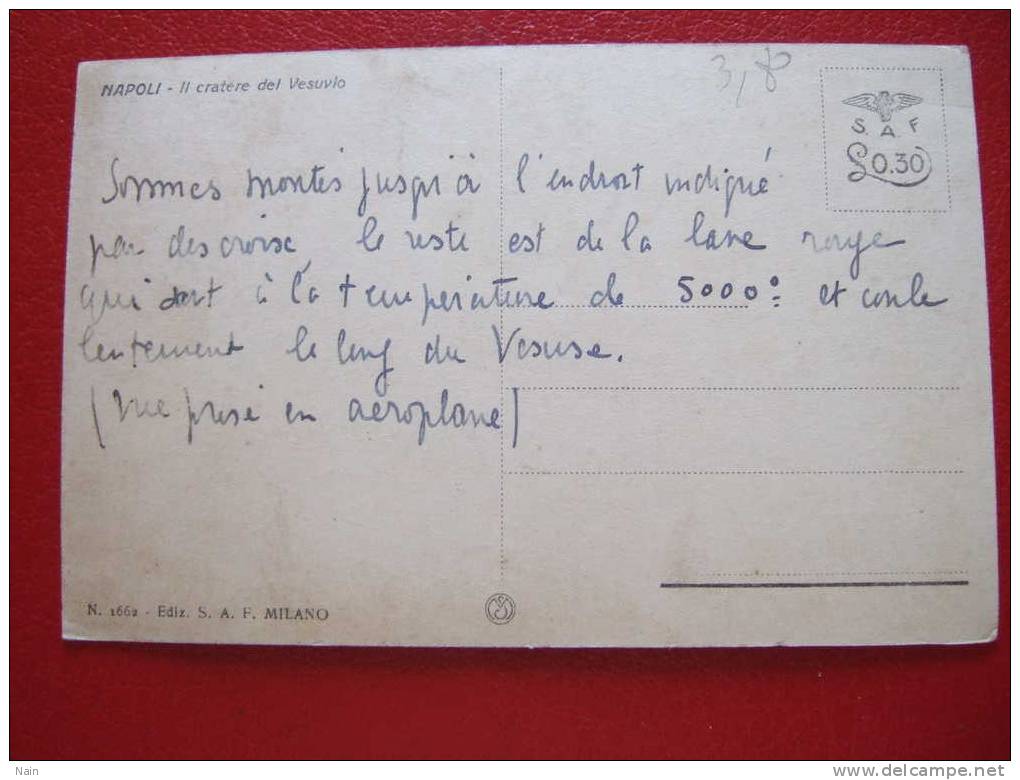 NAPOLI - Il cratere del Vesuvio
3,80
S. A. F
£0.30
Sommes montés jusqu'à l'endroit indiqué
par des croise, le reste est de la lave rouge
qui sort à la température de 5000° et coule
lentement le long du Vesuse.
(Vue prise en aeroplane)
N. 1662 - Ediz. S. A. F. MILANO
Nain
www.delcampe.net